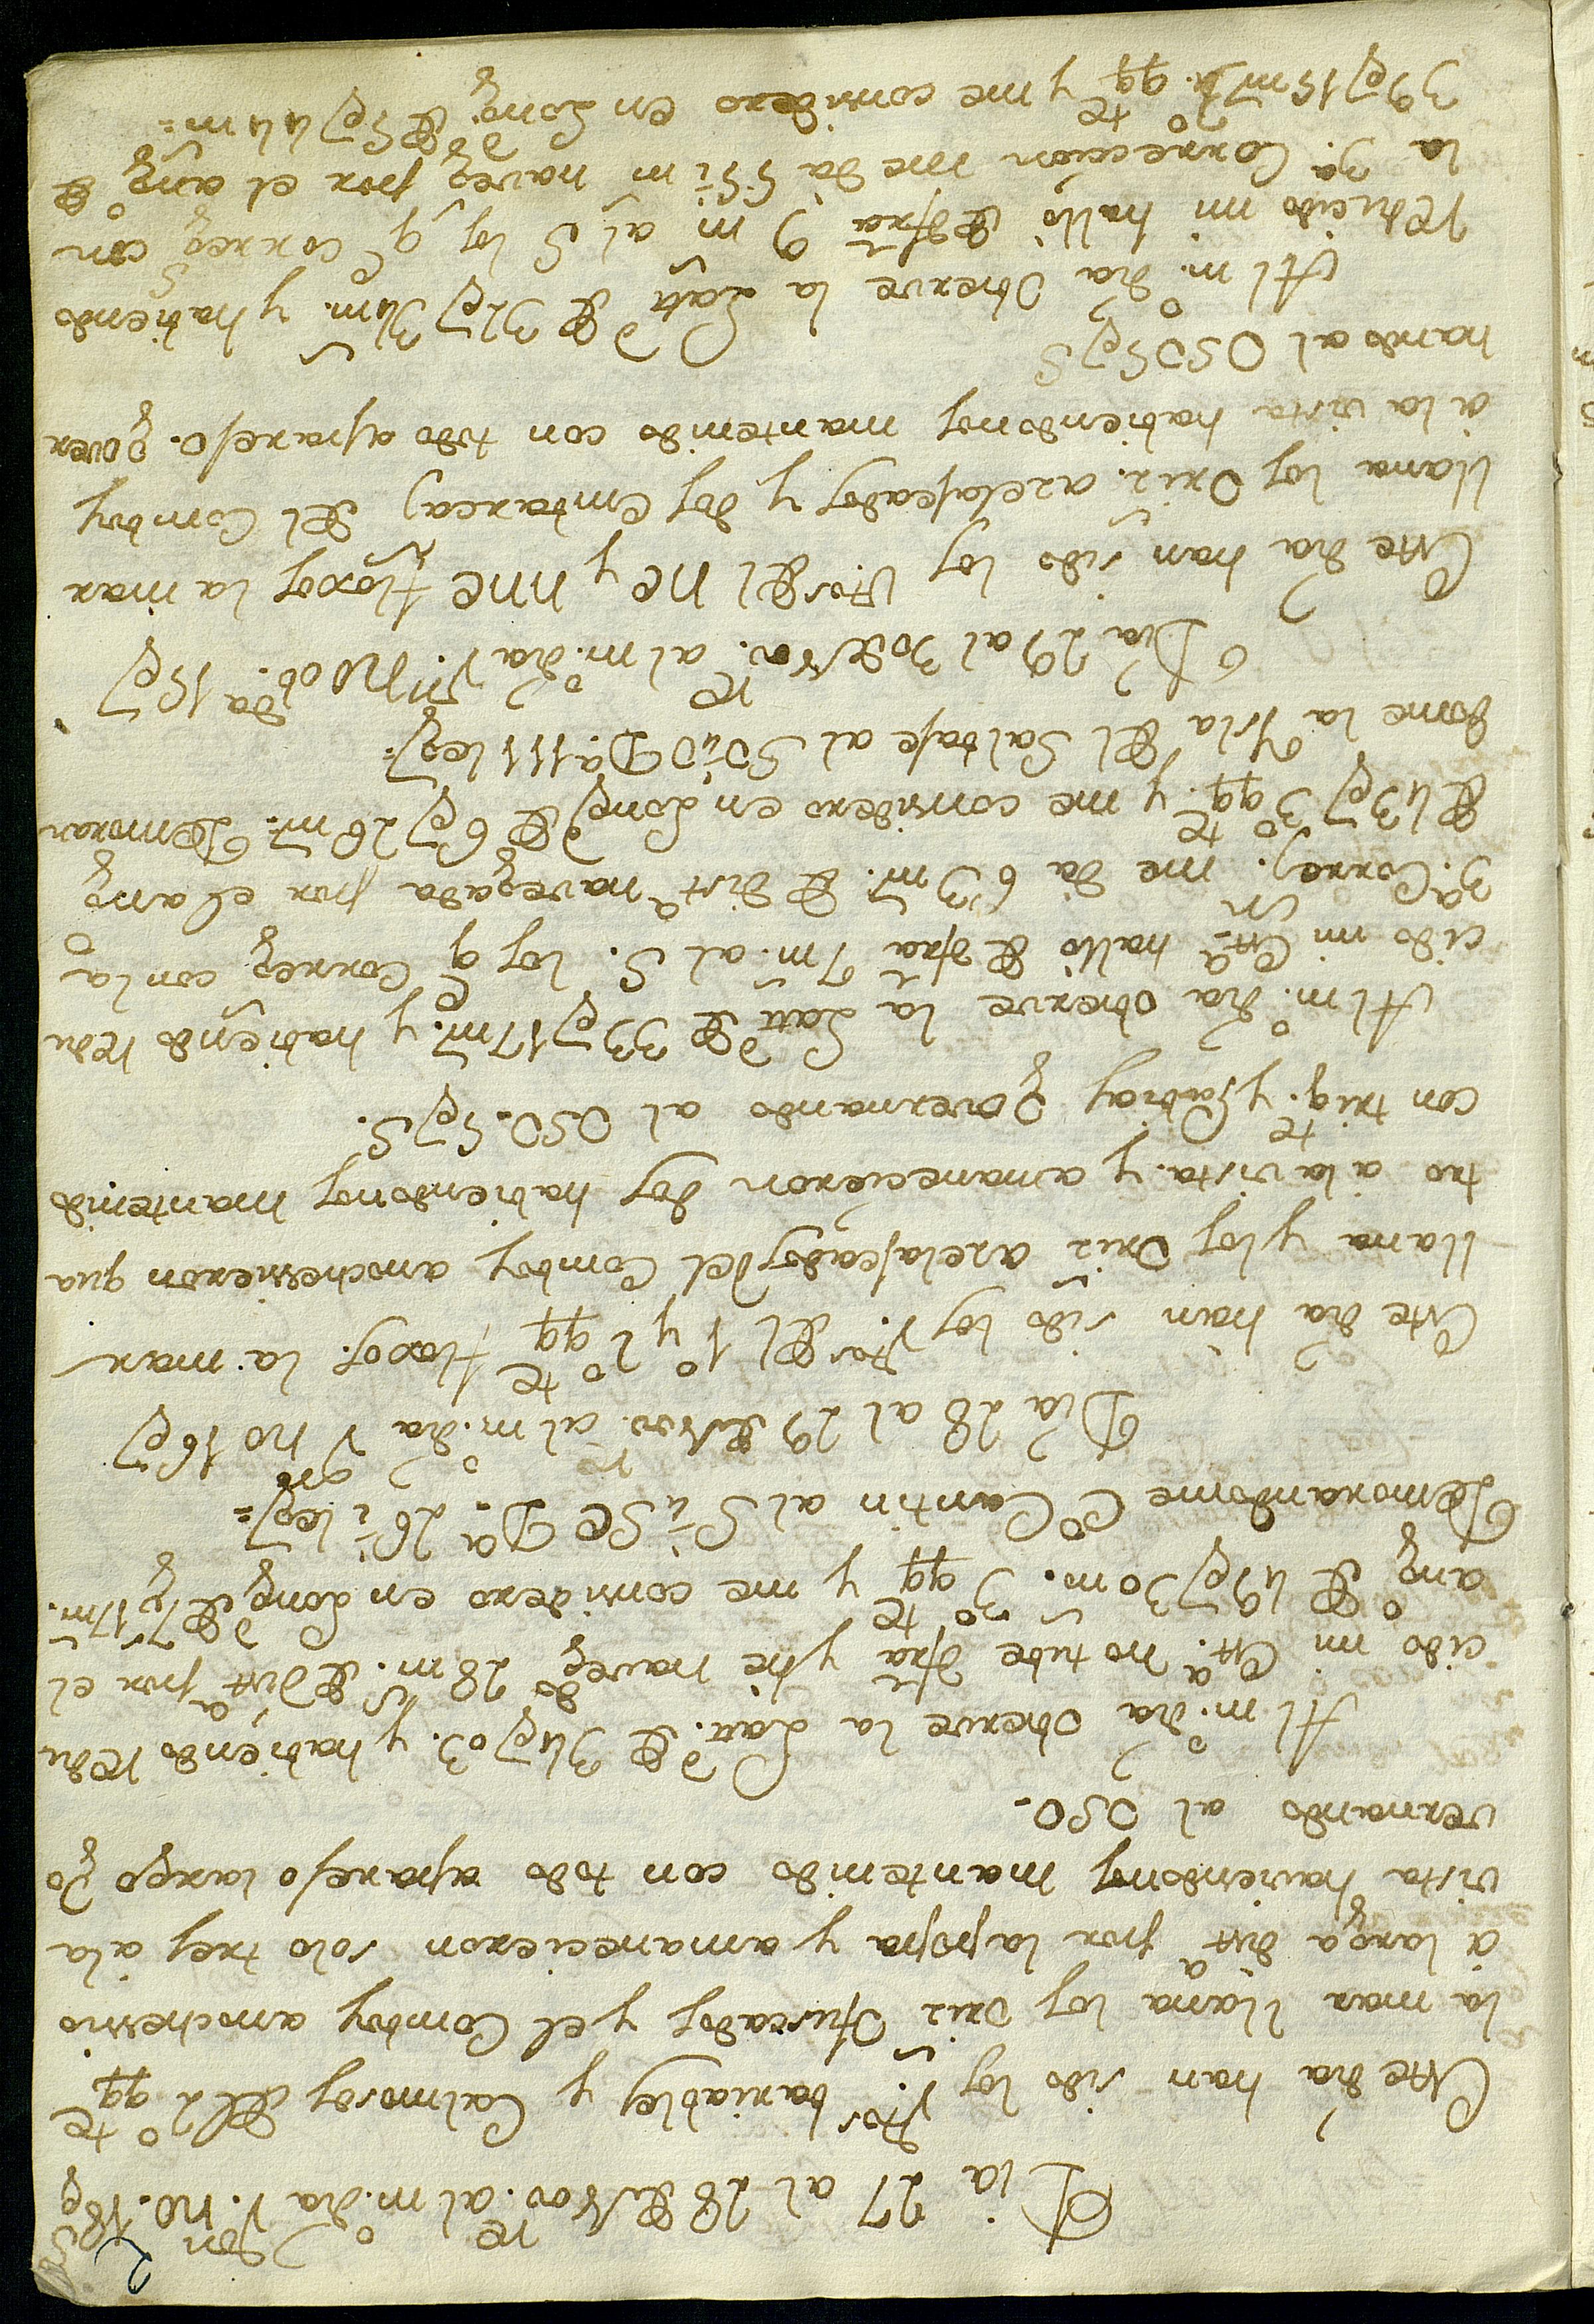 2
Dia 27 al 28 de Nov.re al m.o dia V.on NO. 18g
Este dia han sido los V.tos bariables y Calmosos del 2.o qq.te
la mar llana los Oriz.s Ofuscados y el Comboy anochessio
á larga dist.a por la popa y amanecieron solo tres á la
vista haviendonos mantenido con todo aparejo largo go
vernando al OSO.
Al m.o dia observe la Latt.d de 34g 03. y habiendo redu
cido mi Est.a no tube dfra y he naveg.do 28 m.s de Dist.a por el
ang.o de 49g 30m. 3.o qq.te y me considero en Long.d de 7g 17m.
Demorandome C.o Cantin al S¼SE D.a 26½ leg.s
Dia 28 al 29 de Nov.re al m.o dia V.on NO 16g
Este dia han sido los V.tos del 1.o y 2.o qq.te floxos la mar
llana y los Oriz.s arelajeados del Comboy anochessieron qua
tro a la vista y amanecieron dos habiendonos mantenido
con triq.te y Gabias governando al OSO. 5g S.
Al m.o dia observe la Latt.d de 33g 17m. y habiendo redu
cido mi Est.a hallo de dfra 7 m.s al S. los q.e Correg.o con la
3.a Corre.on me da 63 m.s de dist.a navegada por el ang.o
de 43g 3.o qq.te y me considero en Long.d de 6g 26 m.s Demoran
dome la Ysla del Salbaje al SO¼O D.a 111 leg.s
Dia 29 al 30 de Nov.re al m.o dia V.on NO ob.da 15g
Este dia han sido los V.tos del NE y NNE floxos la mar
llana los Oriz.s arelajeados y dos embarca.s del Comboy
á la vista habiendonos mantenido con todo aparejo. gover
nando al OSO 5g S
Al m.o dia Observe la Latt.d de 32g 34m. y habiendo
reducido mi hallo de dfra 9 m.s al S los q.e correg.o con
la 3.a Correccion me da 55½ m.s naveg.s por el ang.o de
39g 15m 3.o qq.te y me considero en Long.d de 5g 44m.